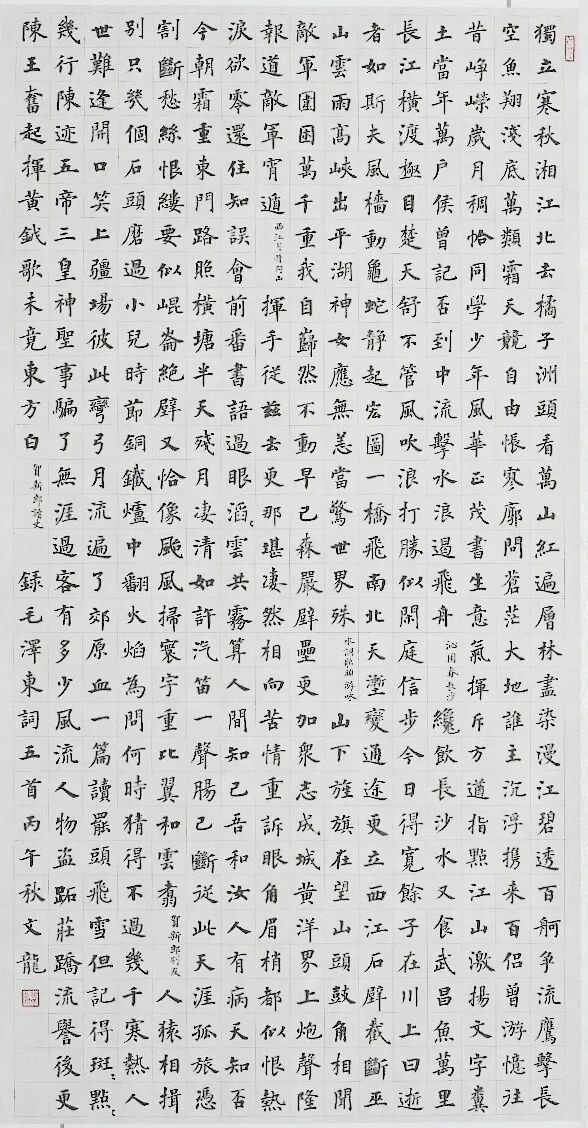 獨立寒秋湘江北去橘子洲頭看萬山紅遍層林盡染漫江碧透百舸爭流鷹擊長
空魚翔淺底萬類霜天競自由悵寥廓問蒼茫大地誰主沉浮携來百侶曾游憶往
昔崢嶸歲月稠恰同學少年風華正茂書生意氣揮斥方遒指點江山激揚文字糞
土當年萬户侯曾記否到中流擊水浪遏飛舟 沁園春長沙 纔飲長沙水又食武昌魚萬里
長江橫渡極目楚天舒不管風吹浪打勝似閑庭信步今日得寬餘子在川上曰逝
者如斯夫風檣動龜蛇静起宏圖一橋飛南北天塹變通途更立西江石壁截斷巫
山雲雨高峽出平湖神女應無恙當驚世界殊 水調歌頭游泳 山下旌旗在望山頭鼓角相聞
敵軍圍困萬千重我自巋然不動早已森嚴壁壘更加衆志成城黃洋界上炮聲隆
報道敵軍宵遁 西江月井岡山 揮手從兹去更那堪凄然相向苦情重訴眼角眉梢都似恨熱
淚欲零還住知誤會前番書語過眼滔々雲共霧算人間知己吾和汝人有病天知否
今朝霜重東門路照橫塘半天殘月凄清如許汽笛一聲腸已斷從此天涯孤旅憑
割斷愁絲恨縷要似崐崙絕壁又恰像颱風掃寰宇重比翼和雲翥 賀新郎別友 人猿相揖
別只幾個石頭磨過小兒時節銅鐵爐中翻火焰為問何時猜得不過幾千寒熱人
世難逢開口笑上疆場彼此彎弓月流遍了郊原血一篇讀罷頭飛雪但記得斑々點々
幾行陳迹五帝三皇神聖事騙了無涯過客有多少風流人物盜跖莊蹻流譽後更
陳王奮起揮黃鉞歌未竟東方白 賀新郎讀史 録毛澤東詞五首丙午秋文龍